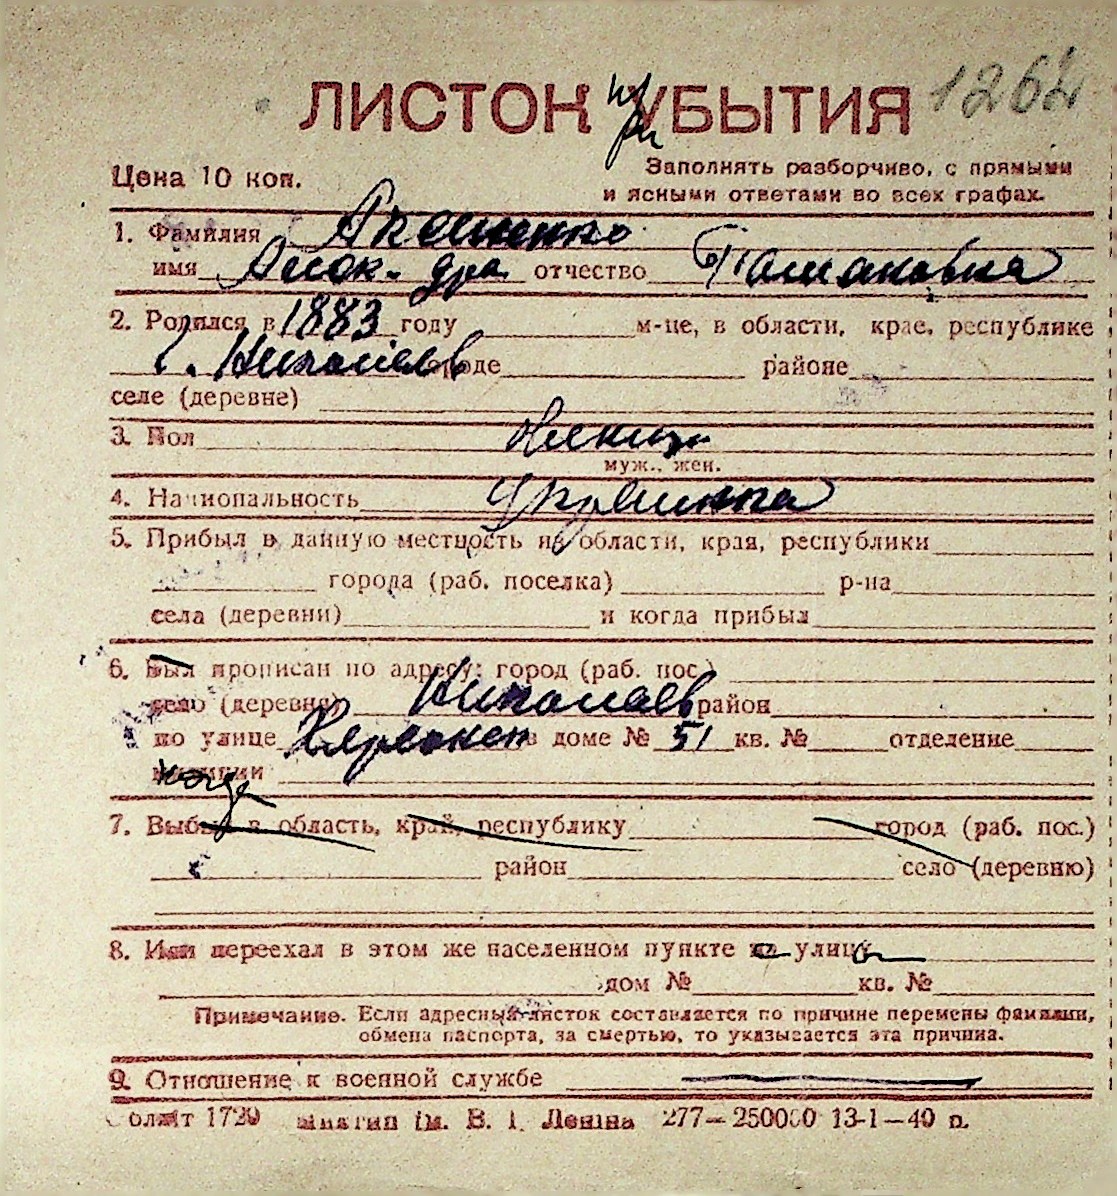 ЛИСТОК УБЫТИЯ 1262
при
Цена 10 коп. Заполнять разборчиво, с прямыми
и ясными ответами во всех графах.
1. Фамилия
имя Алек-дра отчество
2. Родился в 1883 году м-це, в области, крае, республике
г. Николаев городе районе
селе (деревне)
3. Пол женщ
муж., жен.
4. Национальность Украинка
5. Прибыл в данную местность из области, края, республики
города (раб. поселка) р-на
села (деревни) и когда прибыл
6. Был прописан по адресу: город (раб. пос.)
село (деревня) Николаев район
по улице в доме № 51 кв. № отделение
милиции
7. Выбыл в область, край, республику город (раб. пос.)
район село (деревню)
8. Или переехал в этом же населенном пункте на улицу
дом № кв. №
Примечание. Если адресный листок составляется по причине перемены фамилии,
обмена паспорта, за смертью, то указывается эта причина.
9. Отношение к военной службе
им. В. І. Леніна 277—250000 13-1—40 р.